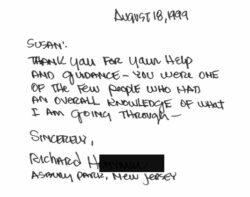 AUGUST 18, 1999
SUSAN:
THANK YOU FOR YOUR HELP
AND GUIDANCE - YOU WERE ONE
OF THE FEW PEOPLE WHO HAD
AN OVERALL KNOWLEDGE OF WHAT
I AM GOING THROUGH -
SINCERELY,
RICHARD
ASBURY PARK, NEW JERSEY